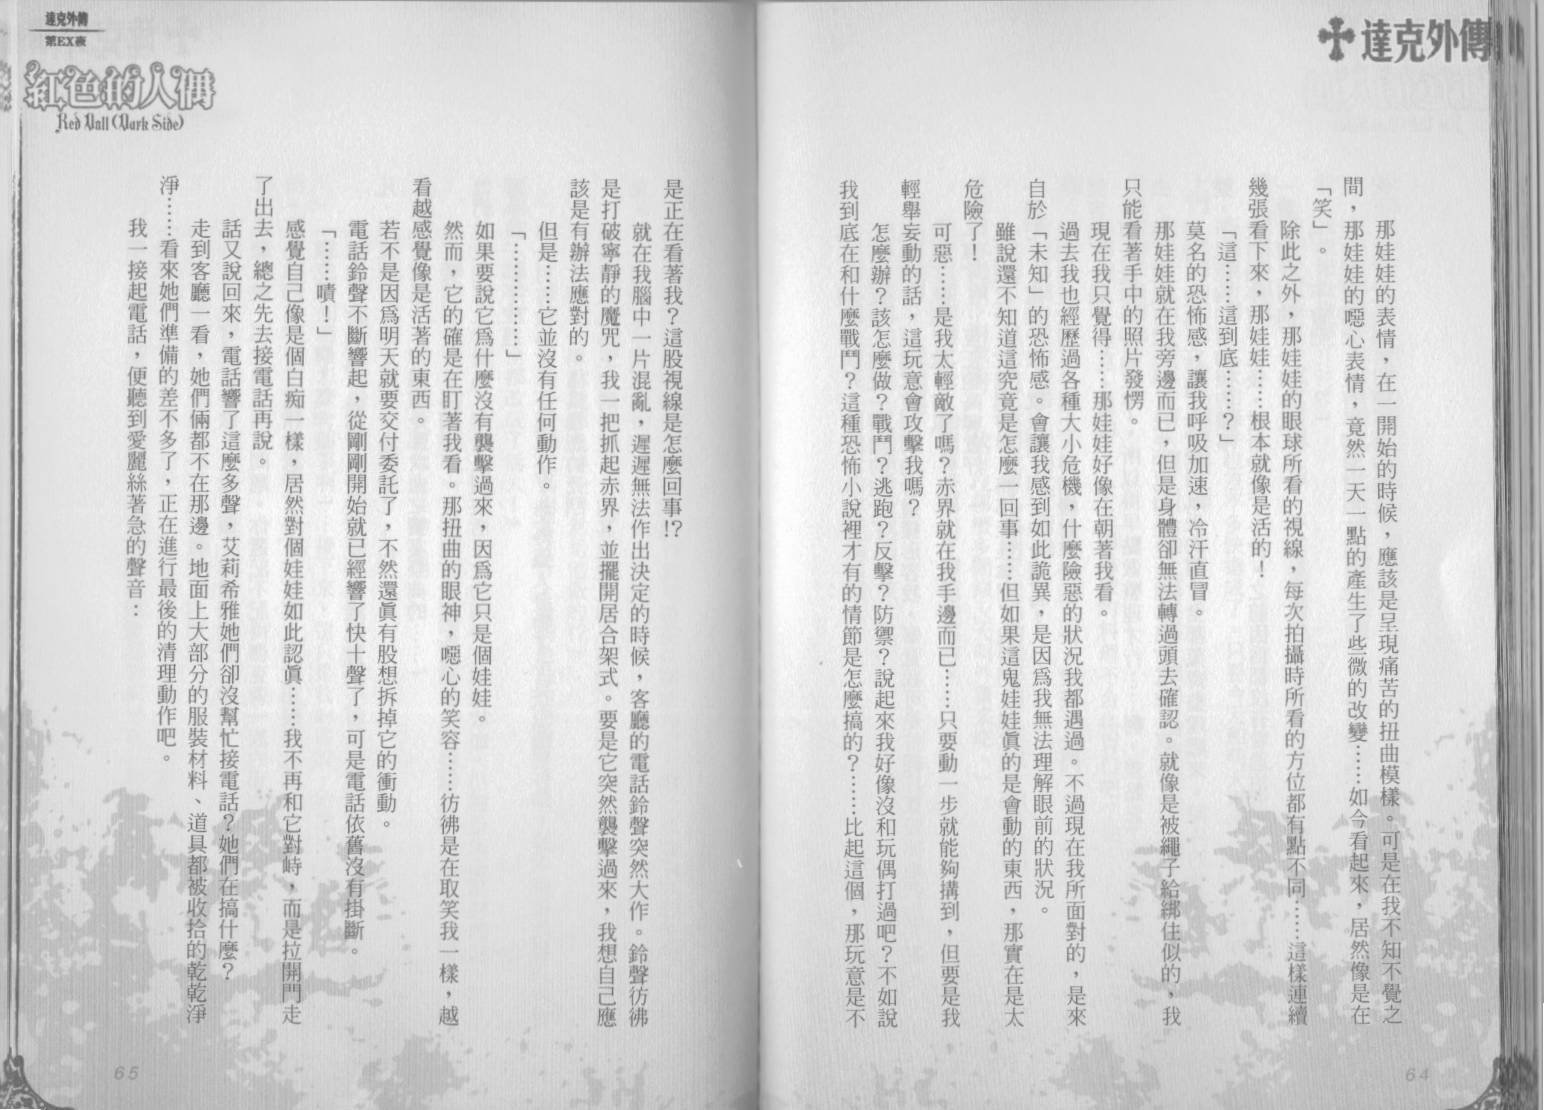 達克外傳
那娃娃的表情，在一開始的時候，應該是呈現痛苦的扭曲模樣。可是在我不知不覺之
間，那娃娃的噁心表情，竟然一天一點的產生了些微的改變……如今看起來，居然像是在
「笑」。
除此之外，那娃娃的眼球所看的視線，每次拍攝時所看的方位都有點不同……這樣連續
幾張看下來，那娃娃……根本就像是活的！
「這……這到底……？」
莫名的恐怖感，讓我呼吸加速，冷汗直冒。
那娃娃就在我旁邊而已，但是身體卻無法轉過頭去確認。就像是被繩子給綁住似的，我
只能看著手中的照片發愣。
現在我只覺得……那娃娃好像在朝著我看。
過去我也經歷過各種大小危機，什麼險惡的狀況我都遇過。不過現在我所面對的，是來
自於「未知」的恐怖感。會讓我感到如此詭異，是因為我無法理解眼前的狀況。
雖說還不知道這究竟是怎麼一回事……但如果這鬼娃娃真的是會動的東西，那實在是太
危險了！
可惡……是我太輕敵了嗎？赤界就在我手邊而已……只要動一步就能夠搆到，但要是我
輕舉妄動的話，這玩意會攻擊我嗎？
怎麼辦？該怎麼做？戰鬥？逃跑？反擊？防禦？說起來我好像沒和玩偶打過吧？不如說
我到底在和什麼戰鬥？這種恐怖小說裡才有的情節是怎麼搞的？……比起這個，那玩意是不
64
達克外傳
第EX夜
紅色的人偶
Red Doll (Dark Side)
是正在看著我？這股視線是怎麼回事!?
就在我腦中一片混亂，遲遲無法作出決定的時候，客廳的電話鈴聲突然大作。鈴聲彷彿
是打破寧靜的魔咒，我一把抓起赤界，並擺開居合架式。要是它突然襲擊過來，我想自己應
該是有辦法應對的。
但是……它並沒有任何動作。
「……………」
如果要說它為什麼沒有襲擊過來，因為它只是個娃娃。
然而，它的確是在盯著我看。那扭曲的眼神，噁心的笑容……彷彿是在取笑我一樣，越
看越感覺像是活著的東西。
若不是因為明天就要交付委託了，不然還真有股想拆掉它的衝動。
電話鈴聲不斷響起，從剛剛開始就已經響了快十聲了，可是電話依舊沒有掛斷。
「……嘖！」
感覺自己像是個白痴一樣，居然對個娃娃如此認真……我不再和它對峙，而是拉開門走
了出去，總之先去接電話再說。
話又說回來，電話響了這麼多聲，艾莉希雅她們卻沒幫忙接電話？她們在搞什麼？
走到客廳一看，她們倆都不在那邊。地面上大部分的服裝材料、道具都被收拾的乾乾淨
淨……看來她們準備的差不多了，正在進行最後的清理動作吧。
我一接起電話，便聽到愛麗絲著急的聲音：
65